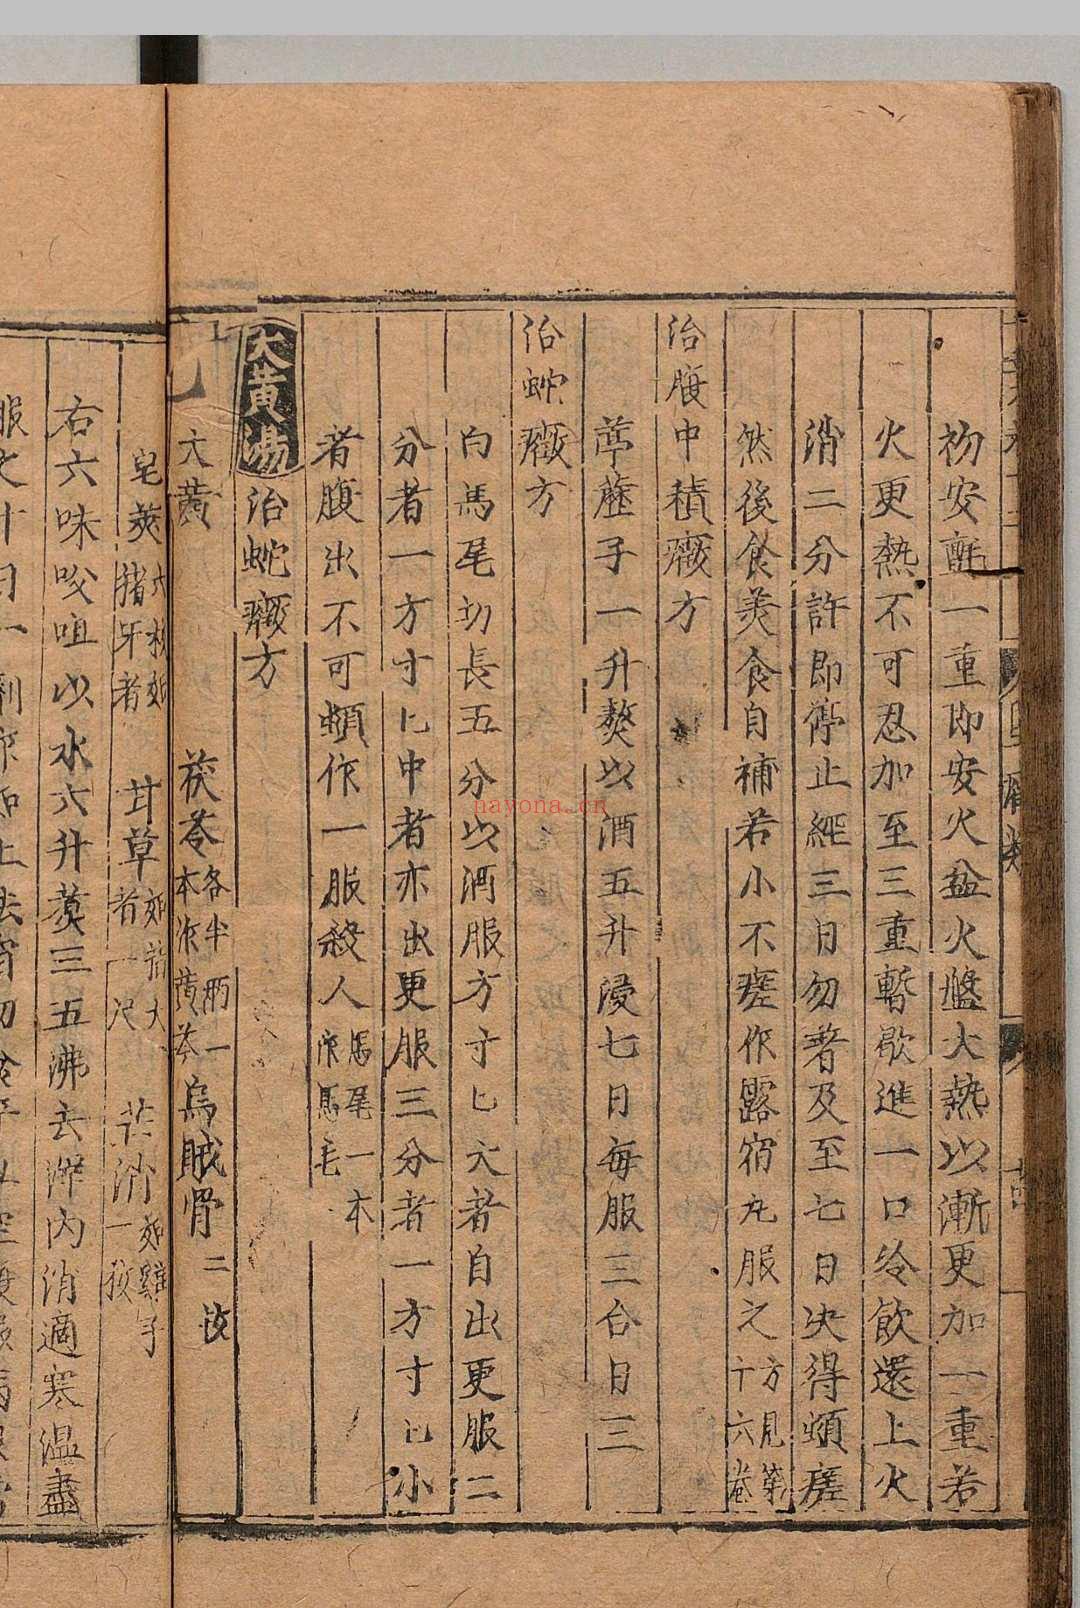 初安氈一重即安火盆火盤大熱以漸更加一重若
火更熱不可忍加至三重暫歇進一口冷飲還上火
消二分許即停止經三日勿著及至七日决得頓瘥
然後食美食自補若小不瘥作露宿丸服之方見第十六卷
治腹中積癥方
葶藶子一升熬以酒五升浸七日每服三合日三
治蛇癥方
白馬尾切長五分以酒服方寸匕大者自出更服二
分者一方寸匕中者亦出更服三分者一方寸匕小
者腹出不可頓作一服殺人馬尾一本作馬毛
大黄湯治蛇癥方
大黄 茯苓各半兩一本作黄芩 烏賊骨二枚
皂莢六枚如猪牙者 甘草如指大者一尺 芒消如雞子一枚
右六味㕮咀以水六升煑三五沸去滓内消適寒温盡
nayona.cn